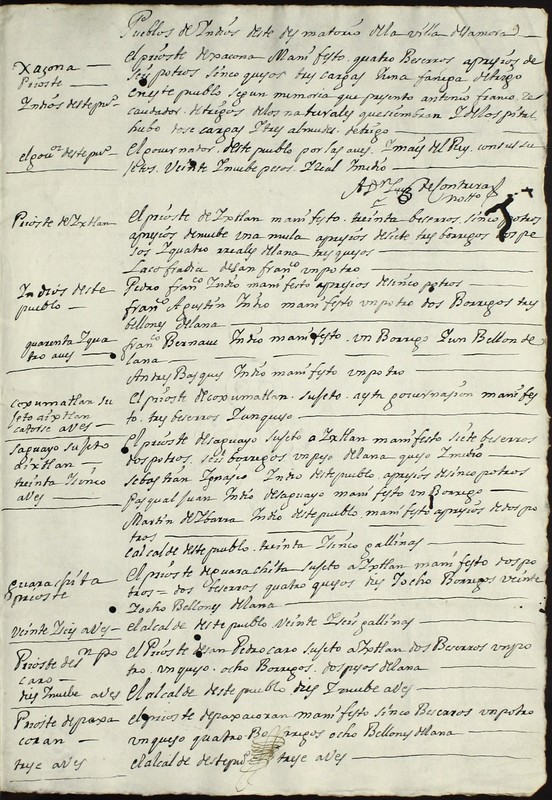 Pueblos de Indios deste desmatorio dela villa de samora
Xacona
Prioste
Indios deste puo
El prioste de xacona Manifesto. quatro Beserros apresios de
seis potros sinco quesos tres cargas Iuna fanega de trigo
en este pueblo segun memoria que presento antonio franco Re
caudador. de trigos delos naturales que siembran I del ospital
hubo dose cargas I tres almudes de trigo
el gouor deste puo
El gouernador. deste pueblo por las aues. I mais del Rey. con sus su
jetos. Veinte I nuebe pesos. I Real I medio
de Contreras
notto
Prioste de Ixtlan
El prioste de Ixtlan manifesto. treinta beserros. sinco potros
apresios de nuebe una mula apresios de siete tres borregos dos pe
sos I quatro rreales de lana tres quesos
La cofradia de san franco un potro
Indios deste
pueblo
Pedro franco Indio manifesto apresios de sinco potros
franco Agustin Indio manifesto un potro dos Borregos tres
bellones de lana
quarenta I qua
tro aues
franco Bernaue Indio manifesto. un Borrego I un Bellon de
lana
Andres Basques Indio manifesto un potro
coxumatlan su
jeto a ixtlan
catorse aues
El prioste de coxumatlan. sujeto. a esta gouernasion manifes
to. tres beserros I un queso
saguayo sujeto
a ixtlan
treinta I sinco
aues
El prioste de saguayo sujeto a Ixtlan manifesto siete beserros
dos potros. seis borregos un peso de lana queso I medio
sebastian Ignasio Indio deste pueblo apresios de sinco potros
Pasqual Juan Indio de saguayo manifesto un Borrego
Martin de Ibarra Indio deste pueblo manifesto apresios de dos po
tros
el alcalde deste pueblo. treinta I sinco gallinas
guarachita
prioste
El prioste de guarachita sujeto a Ixtlan manifesto dos po
tros = dos beserros quatro quesos dies I ocho Borregos veinte
I ocho Bellones de lana
Veinte I seis aues
el alcalde deste pueblo Veinte I seis gallinas
Prioste de sn po
caro
dies I nuebe aues
el Prioste de san Pedro caro sujeto a Ixtlan dos Beserros un po
tro. un queso. ocho Borregos. dos pesos de lana
El alcalde deste pueblo dies I nuebe aues
Prioste de paxa
coran
el prioste de paxacoran manifesto sinco Beserros un potro
un queso quatro Borregos ocho Bellones de lana
trese aues
el alcalde deste puo trese aues